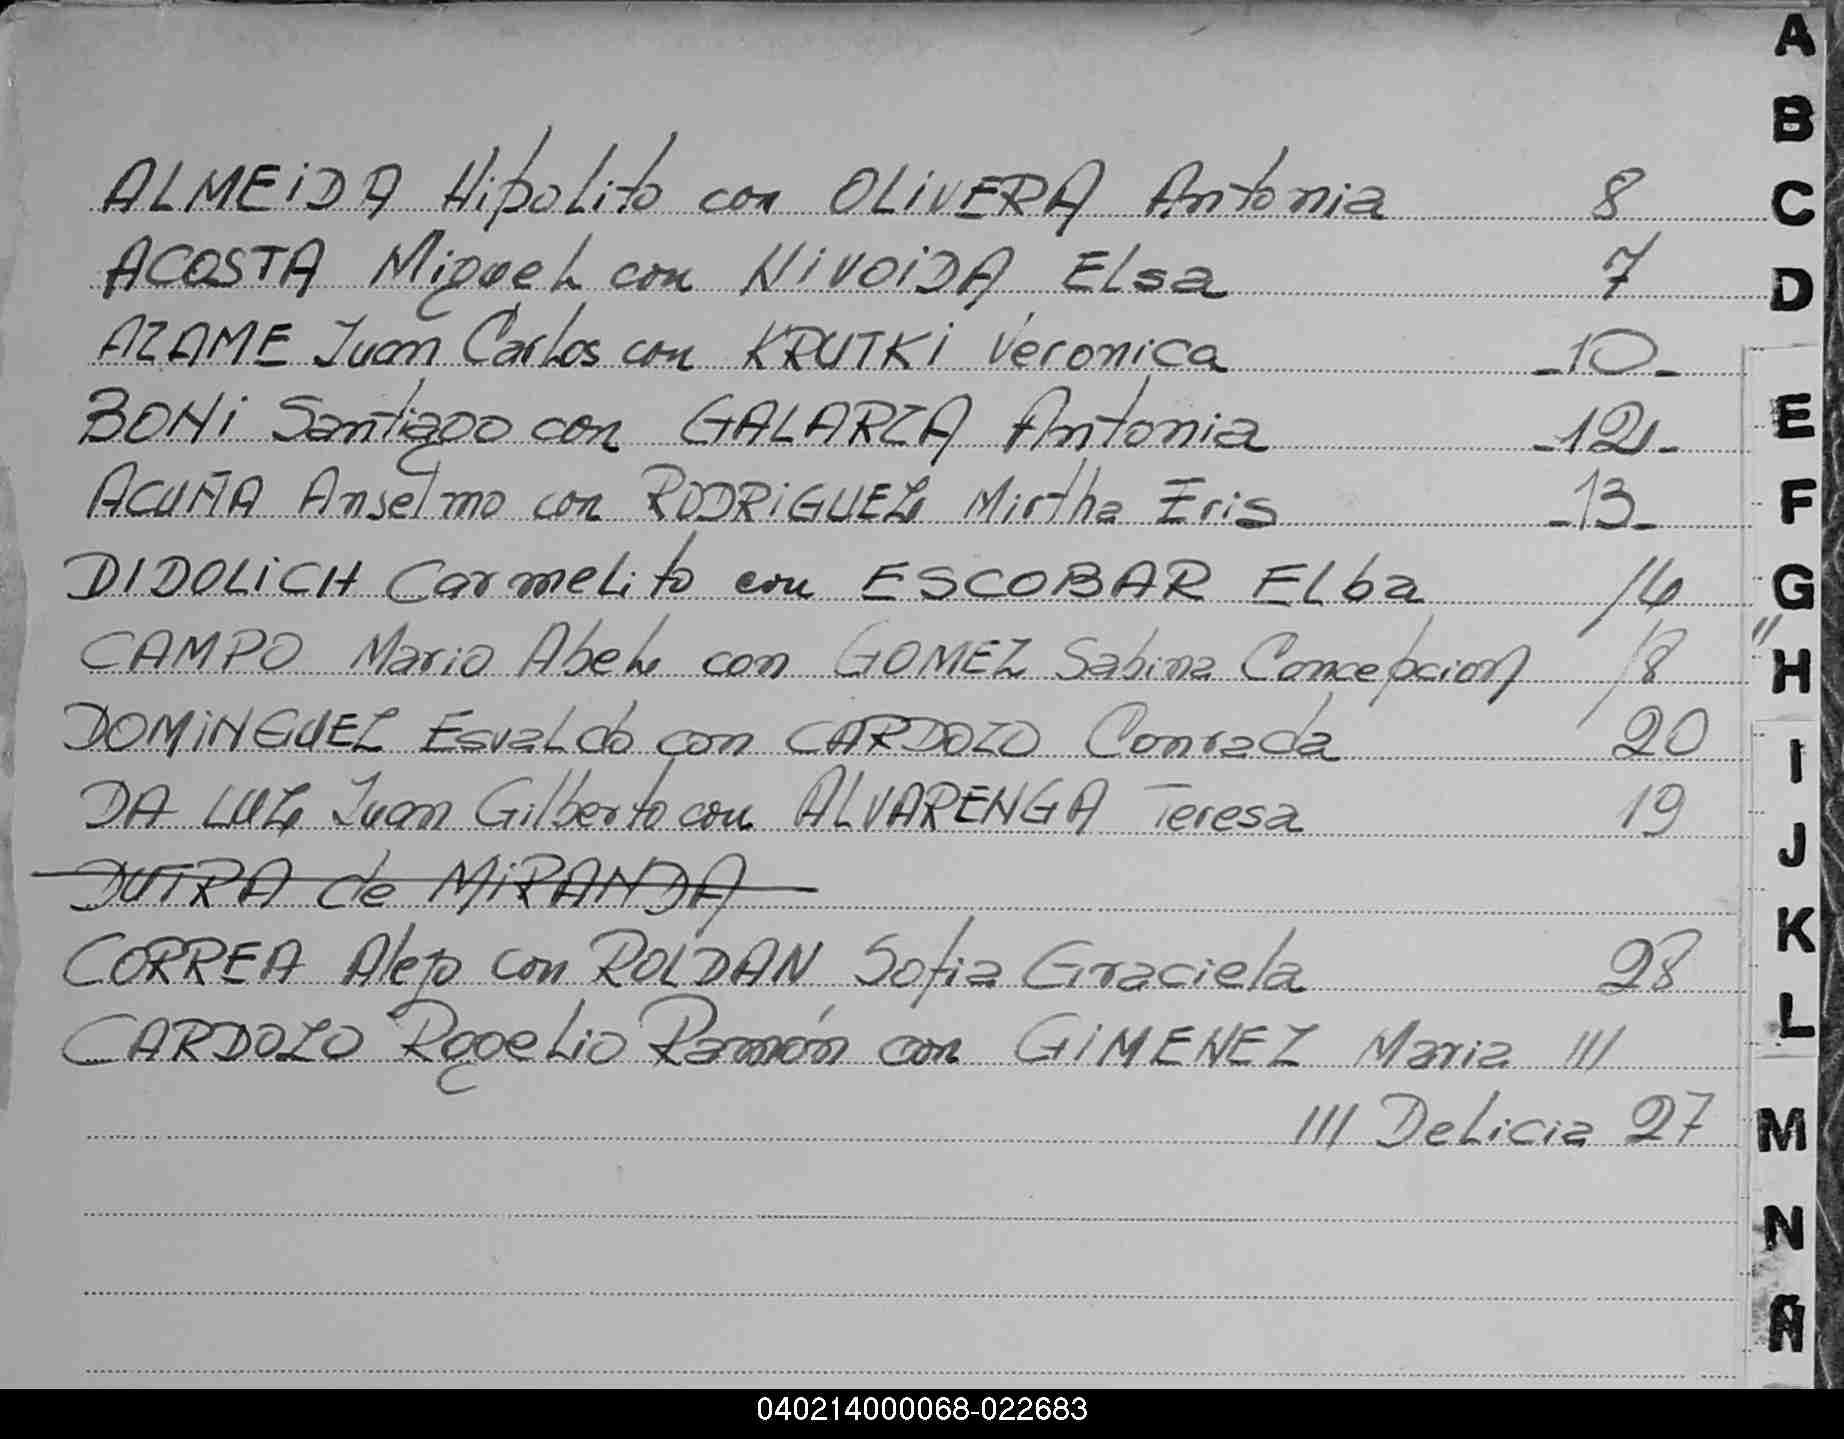 ALMEIDA Hipolito con OLIVERA Antonia 8
ACOSTA Miguel con NIVOIDA Elsa 7
AZAME Juan Carlos con KRUTKI Veronica -10-
BONI Santiago con GALARZA Antonia -12-
ACUÑA Anselmo con RODRIGUEZ Mirtha Eris -13-
DIDOLICH Carmelito con ESCOBAR Elba
CAMPO Mario Abel con GOMEZ Sabina Concepcion 18
DOMINGUEZ Esvaldo con CARDOZO Conrada 20
DA LUZ Juan Gilberto con ALVARENGA Teresa 19
DUTRA de MIRANDA
CORREA Alejo con ROLDAN Sofia Graciela 28
CARDOZO Rogelio Ramón con GIMENEZ Maria ///
/// Delicia 27
A
B
C
D
E
F
G
H
I
J
K
L
M
N
Ñ
040214000068-022683